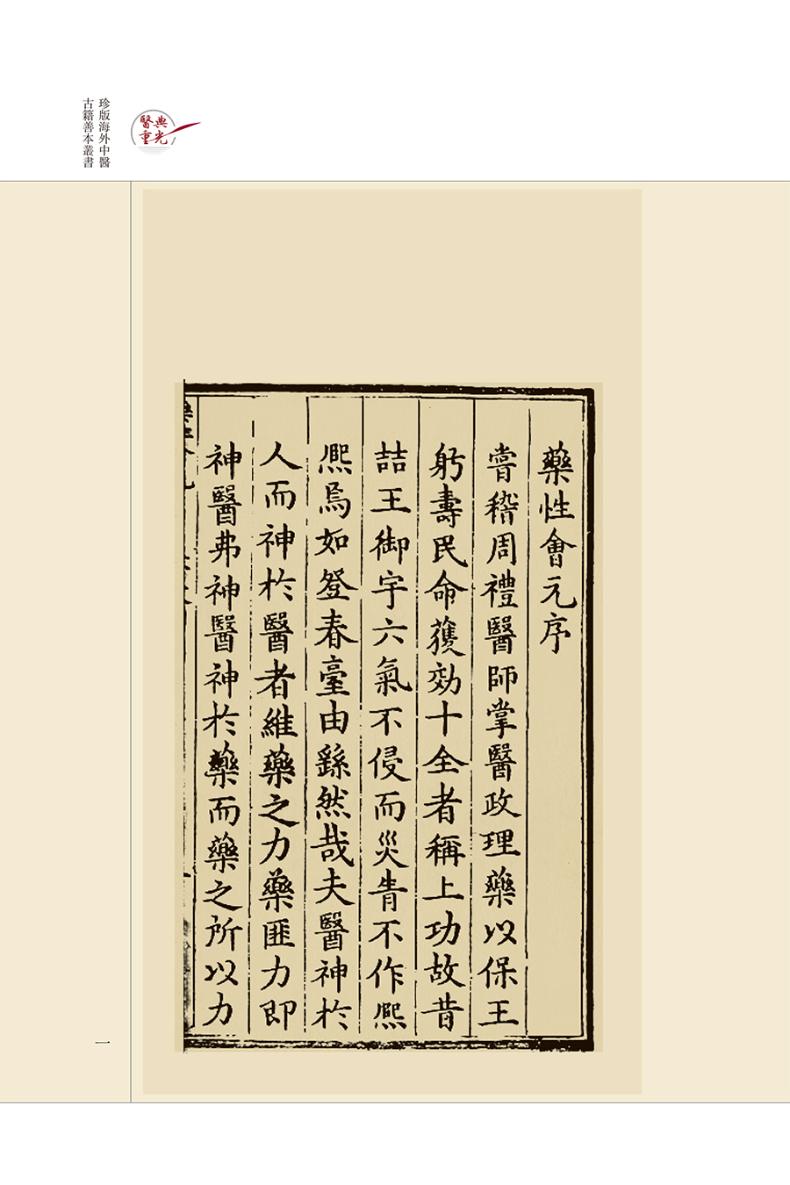 珍版海外中醫
古籍善本叢書
醫典
重光
藥性會元序
嘗稽周禮醫師掌醫政理藥以保王
躬壽民命獲効十全者稱上功故昔
喆王御宇六氣不侵而災眚不作熈
熈焉如登春臺由繇然哉夫醫神於
人而神於醫者維藥之力藥匪力即
神醫弗神醫神於藥而藥之所以力
一